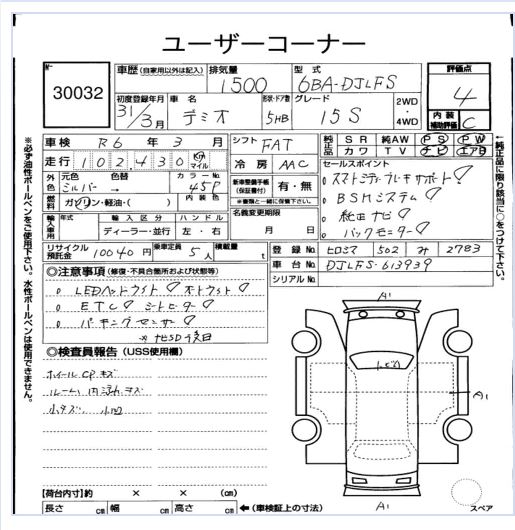 ユーザーコーナー
30032
車歴 (自家用以外は記入) 排気量 1500 型式 6BA-DJLFS 評価点 4
初度登録年月 31/3月 車名 デミオ 形状・ドア数 5HB グレード 15S 2WD・4WD 内装補助評価 C
車検 R6年3月 シフト FAT 純正品 SR 純AW PS PW
走行 102,430 km マイル カワ TV ナビ エアB
外色 元色 シルバー→ 色替 カラーNo. 45P 冷房 AAC セールスポイント
燃料 ガソリン・軽油・( ) 内装色 新車整備手帳(保証書付) 有・無 スマートシティブレーキサポート
※車輌と一緒に保管して下さい。 BSMシステム
輸入車用 年式 輸入区分 ディーラー・並行 ハンドル 左・右 名義変更期限 月 日 純正ナビ
バックモニター
リサイクル預託金 10040円 乗車定員 5人 積載量 t 登録No. ヒロシマ 502 み 2783
車台No. DJLFS-613939
シリアルNo.
◎注意事項 (修復・不具合箇所および状態等)
LEDヘッドライト オートライト
ETC シートヒーター
パーキングセンサー
※ナビSD後日
◎検査員報告 (USS使用欄)
ホイールCPキズ
ルーム内 キズ
小キズ 小凹
A1
A1
A1
スペア
【荷台内寸】約 × × (cm)
長さ cm 幅 cm 高さ cm ←(車検証上の寸法)
※必ず油性ボールペンをご使用下さい。水性ボールペンは使用できません。
←純正品に限り該当に○をつけて下さい。